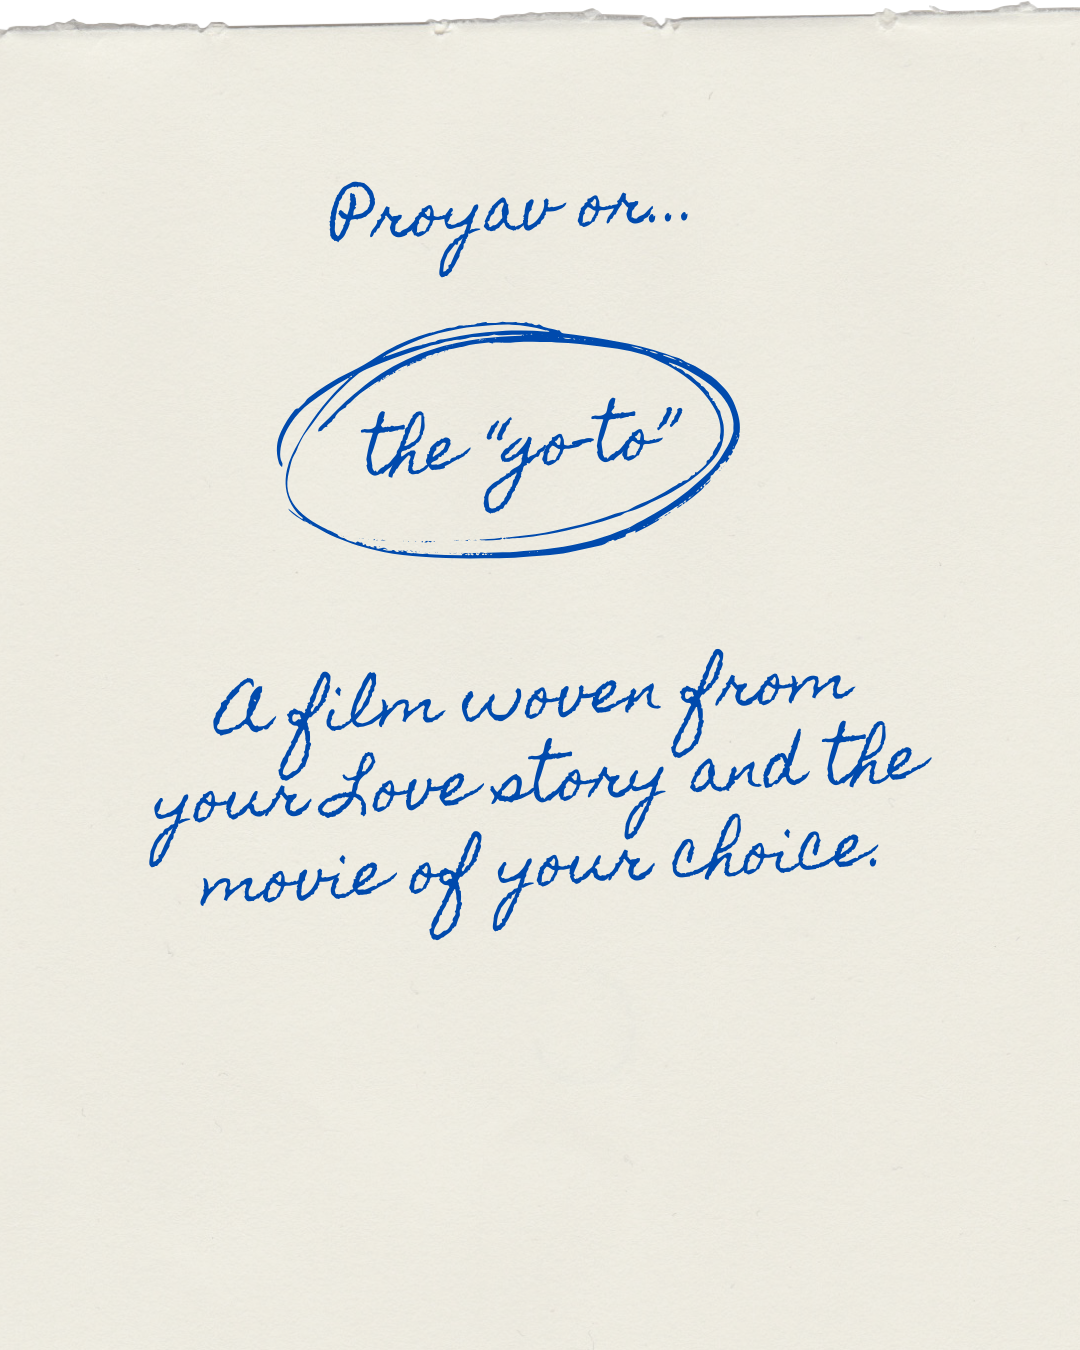 Proyav or...
the "go-to"
A film woven from
your Love story and the
movie of your choice.